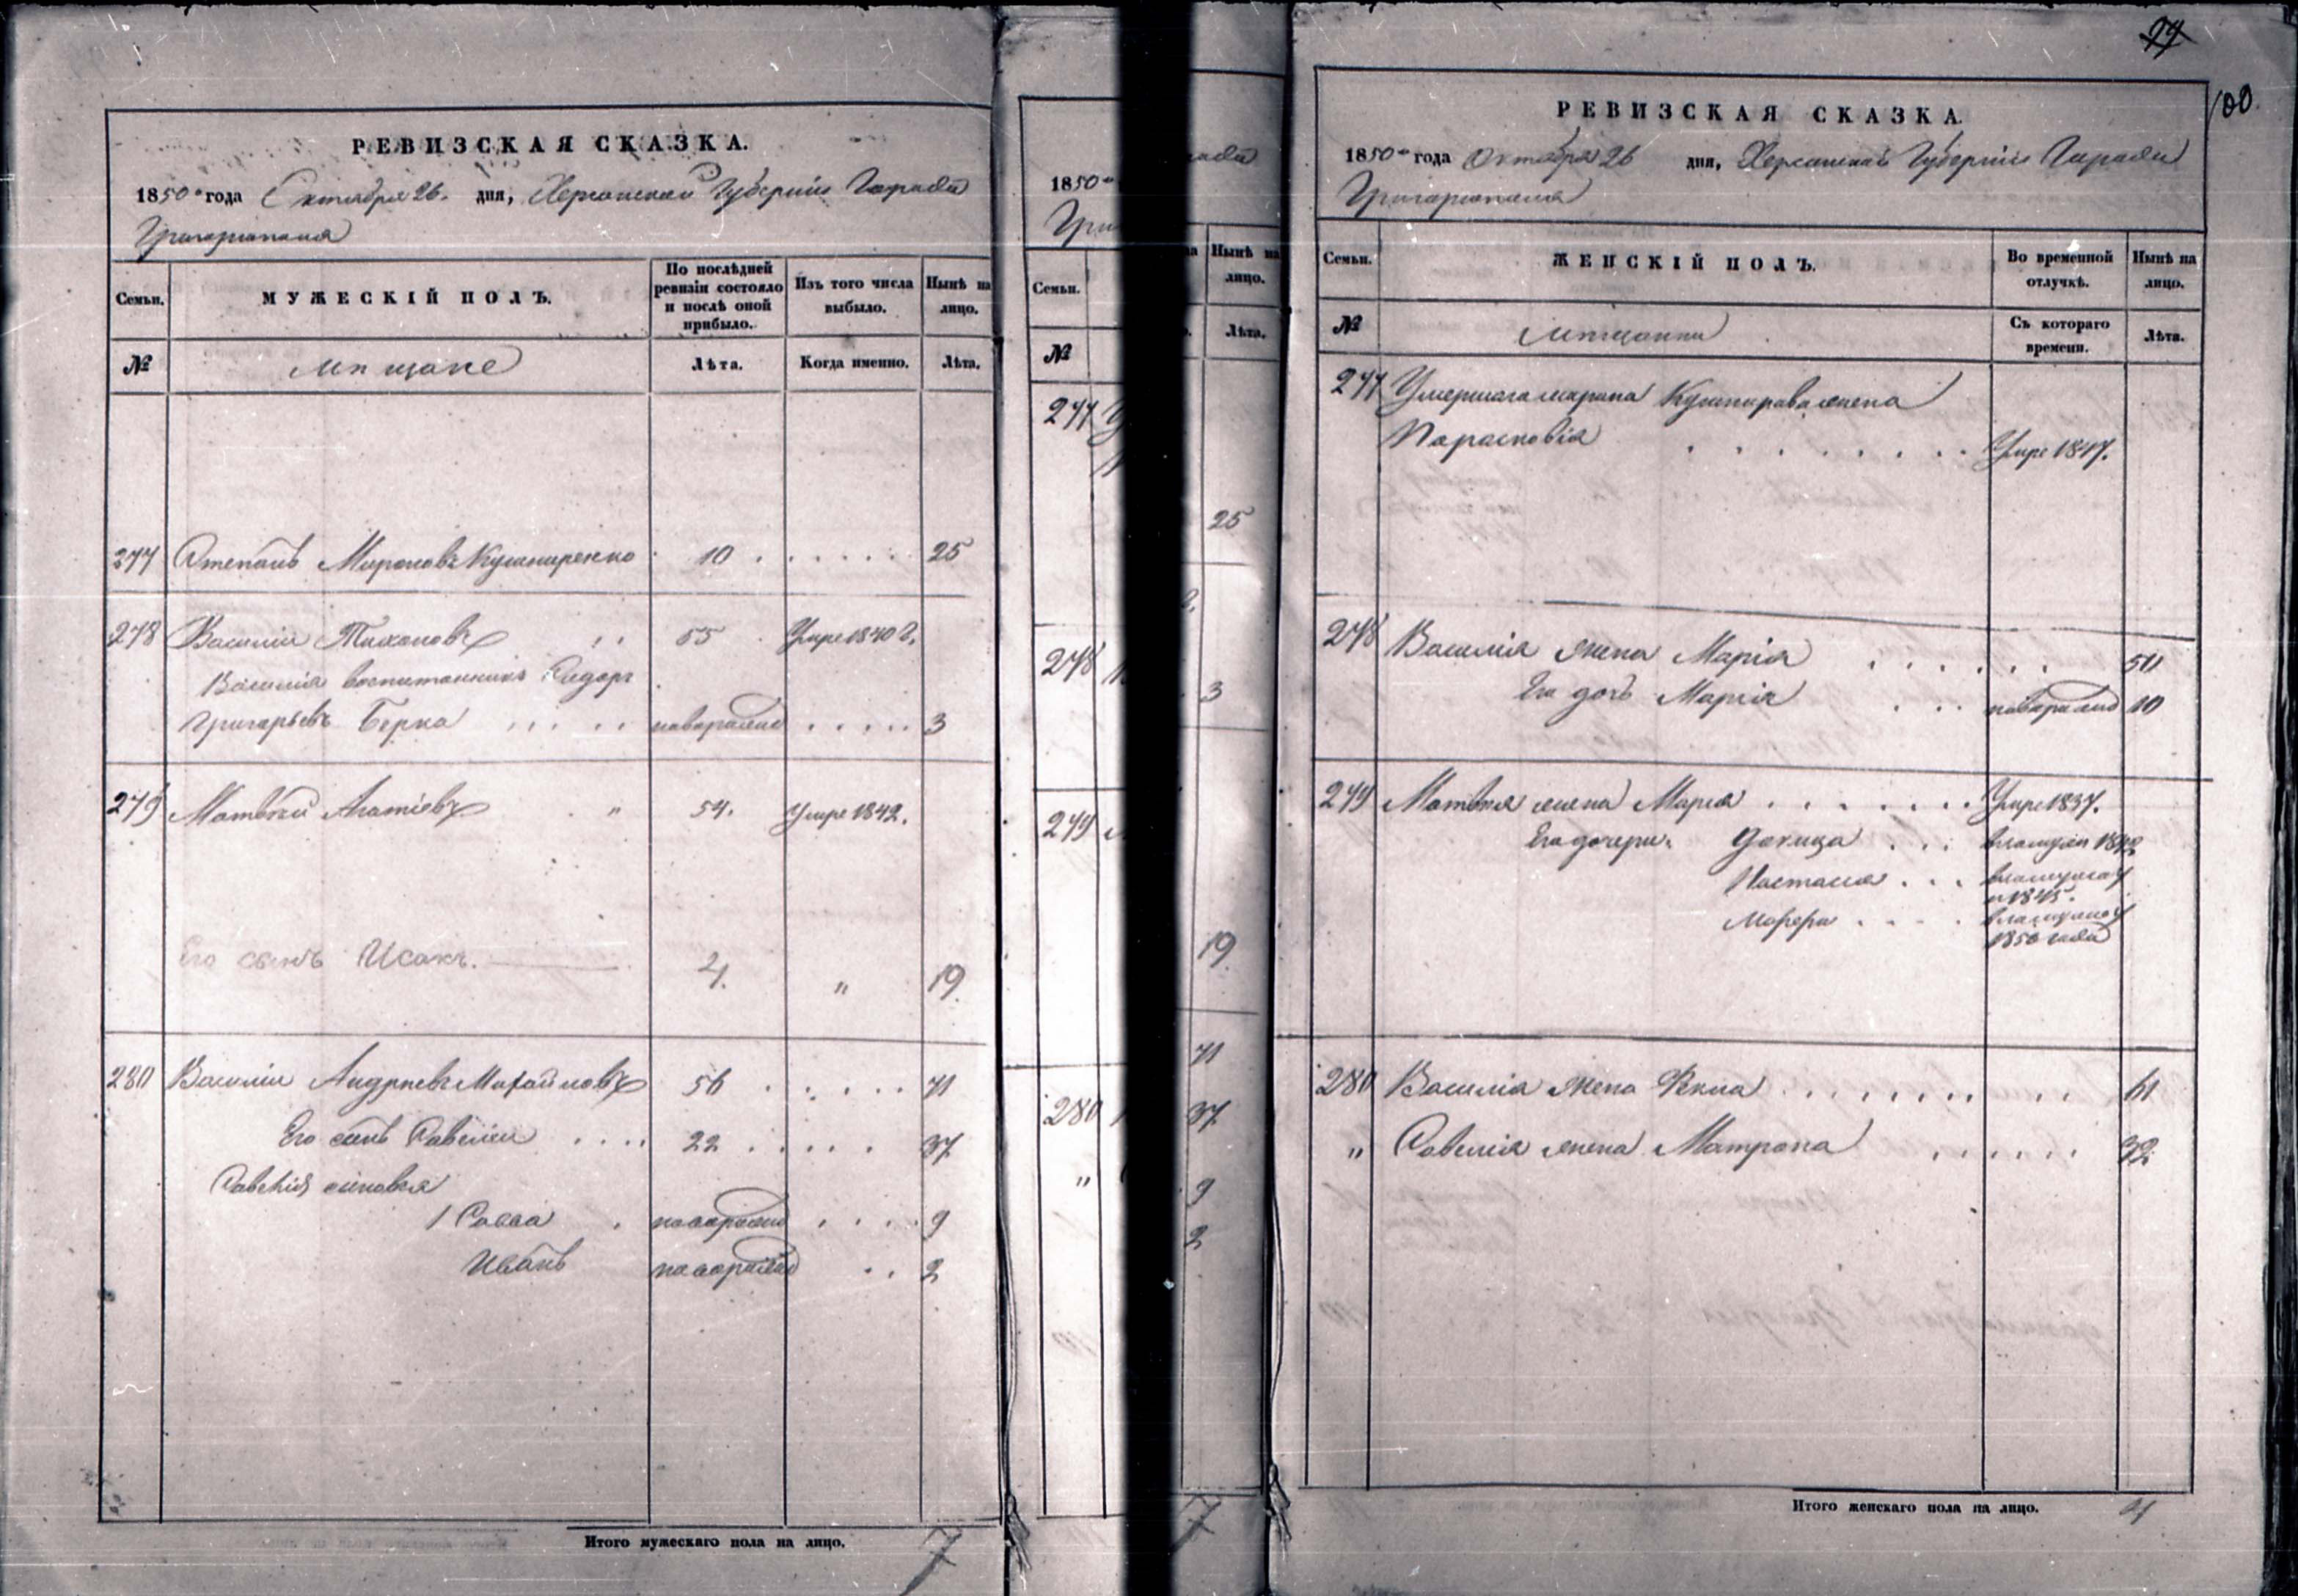 РЕВИЗСКАЯ СКАЗКА.
1850го года Октября 26. дня, Херсонской Губернiи Города
Григорiополя
Семьи.
МУЖЕСКІЙ ПОЛЪ.
По послѣдней ревизіи состояло и послѣ оной прибыло.
Изъ того числа выбыло.
Нынѣ на лицо.
№
Мѣщане
Лѣта.
Когда именно.
Лѣта.
277 Степанъ Мироновъ Кушниренко 10 25
278 Василiй Тихоновъ 55 Умре 1840 г.
Василiя воспитанникъ Сидоръ
Григорьевъ Берка новорожд 3
279 Матвѣй Агатiевъ " 54. Умре 1842.
Его сынъ Исакъ. 4. " 19.
280 Василiй Андреевъ Михайловъ 56 71
Его сынъ Савелiй 22 37
Савелiя сыновья
1 Савва новорожд 9
Иванъ новорожд 2
Итого мужескаго пола на лицо. 7
1850го
Семьи.
№
277
278
279
280
"
Нынѣ на
лицо.
Лѣта.
25
3
19
71
37
9
2
7
99
100.
РЕВИЗСКАЯ СКАЗКА.
1850го года Октября 26 дня, Херсонской Губернiи Города
Григорiополя
Семьи.
ЖЕНСКІЙ ПОЛЪ.
Во временной отлучкѣ.
Нынѣ на лицо.
№
Мѣщанки
Съ котораго времени.
Лѣта.
277 Умершаго Мирона Кушнирова жена
Парасковiя Умре 1847.
278 Василiя жена Марiя 50
Его дочь Марiя новорожд 10
279 Матвѣя жена Марiя Умре 1837.
Его дочери. Докица
Настасiя
1845.
1850 года
280 Василiя жена Фекла 61
" Савелiя жена Матрона 32
Итого женскаго пола на лицо. 4